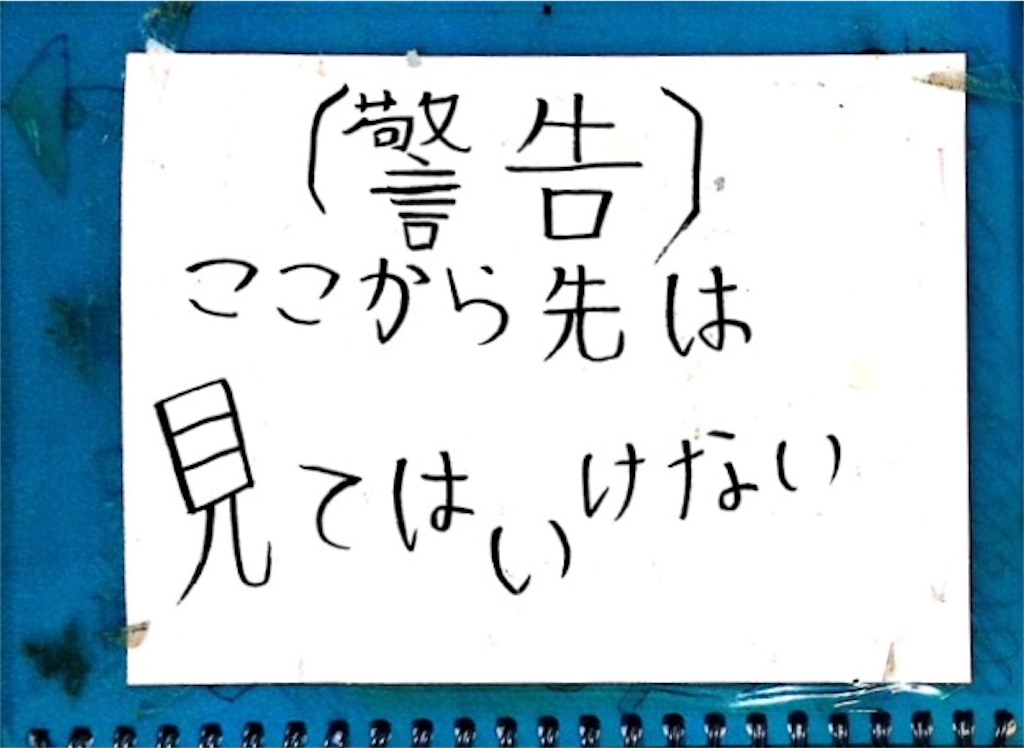 (警告)
ここから先は
見てはいけない